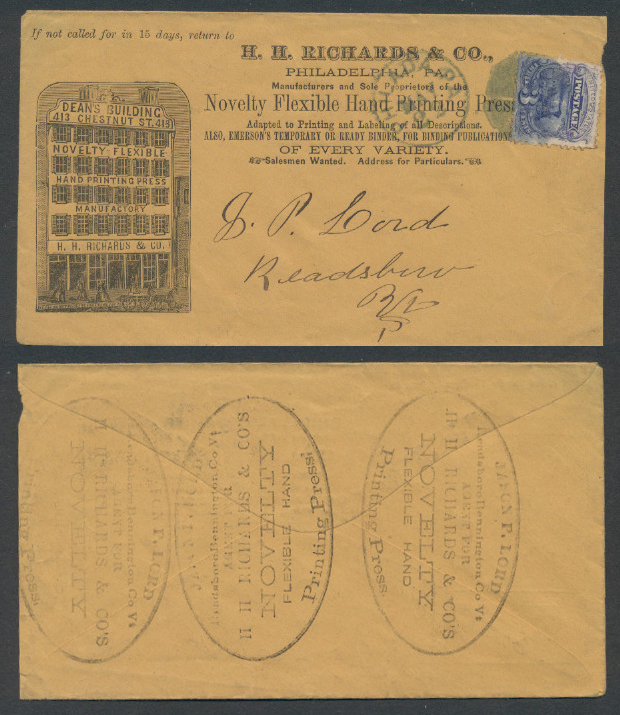 If not called for in 15 days, return to
H. H. RICHARDS & CO.,
PHILADELPHIA, PA.
Manufacturers and Sole Proprietors of the
Novelty Flexible Hand Printing Press
Adapted to Printing and Labeling of all Descriptions.
ALSO, EMERSON'S TEMPORARY OR READY BINDER, FOR BINDING PUBLICATIONS
OF EVERY VARIETY.
Salesmen Wanted. Address for Particulars.
DEAN'S BUILDING
413 CHESTNUT ST. 419
NOVELTY FLEXIBLE
HAND PRINTING PRESS
MANUFACTORY
H. H. RICHARDS & CO.
POSTAGE
J. P. Lord
Readsboro
Vt
P. LORD
Readsboro Bennington Co Vt
AGENT FOR
H H RICHARDS & CO'S
NOVELTY
FLEXIBLE HAND
Printing Press.
Readsboro Bennington Co Vt
H H RICHARDS & CO'S
NOVELTY
FLEXIBLE HAND
Printing Press.
P. LORD
Bennington Co Vt
AGENT FOR
H H RICHARDS & CO'S
NOVELTY
Printing Press.